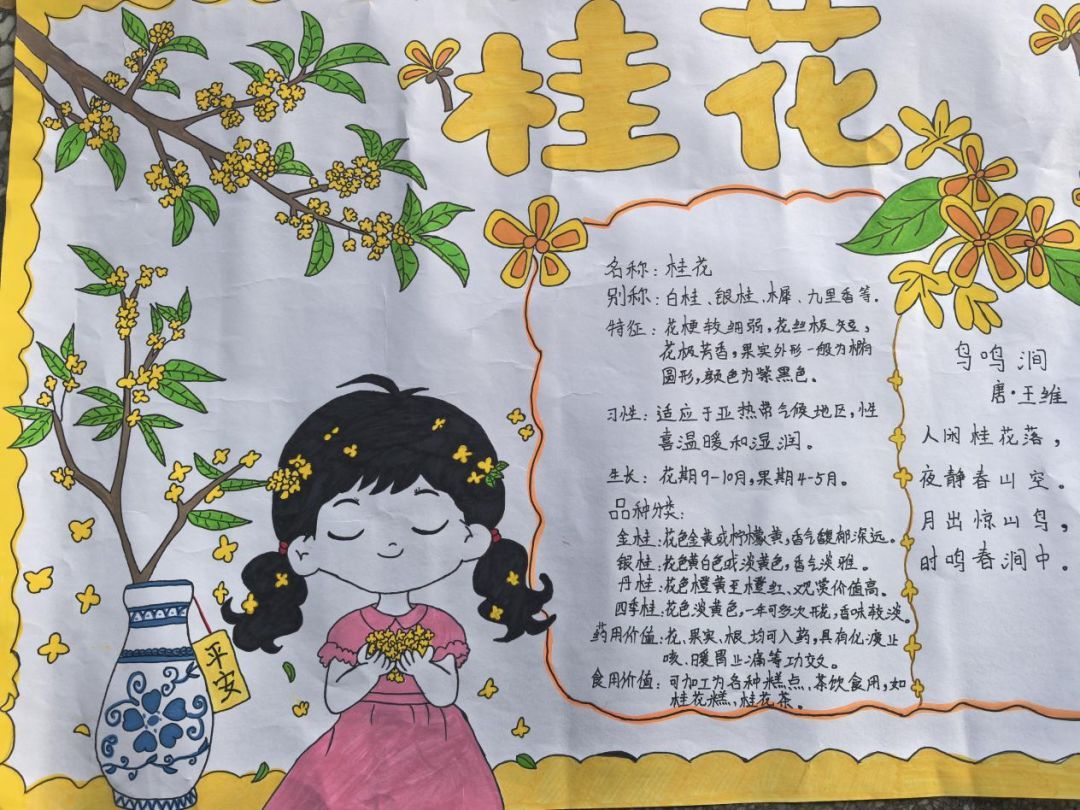 桂花
名称：桂花
别称：白桂、银桂、木犀、九里香等.
特征：花梗较细弱，花丝极短，
花极芳香，果实外形一般为椭
圆形，颜色为紫黑色。
习性：适应于亚热带气候地区，性
喜温暖和湿润。
生长：花期9-10月，果期4-5月。
品种分类：
金桂：花色金黄或柠檬黄，香气馥郁深远。
银桂：花色黄白色或淡黄色，香气淡雅。
丹桂：花色橙黄至橙红、观赏价值高。
四季桂：花色淡黄色，一年可多次开花，香味较淡。
药用价值：花、果实、根均可入药，具有化痰止
咳、暖胃止痛等功效。
食用价值：可加工为各种糕点、茶饮食用，如
桂花糕，桂花茶。
鸟鸣涧
唐·王维
人闲桂花落，
夜静春山空。
月出惊山鸟，
时鸣春涧中。
平安